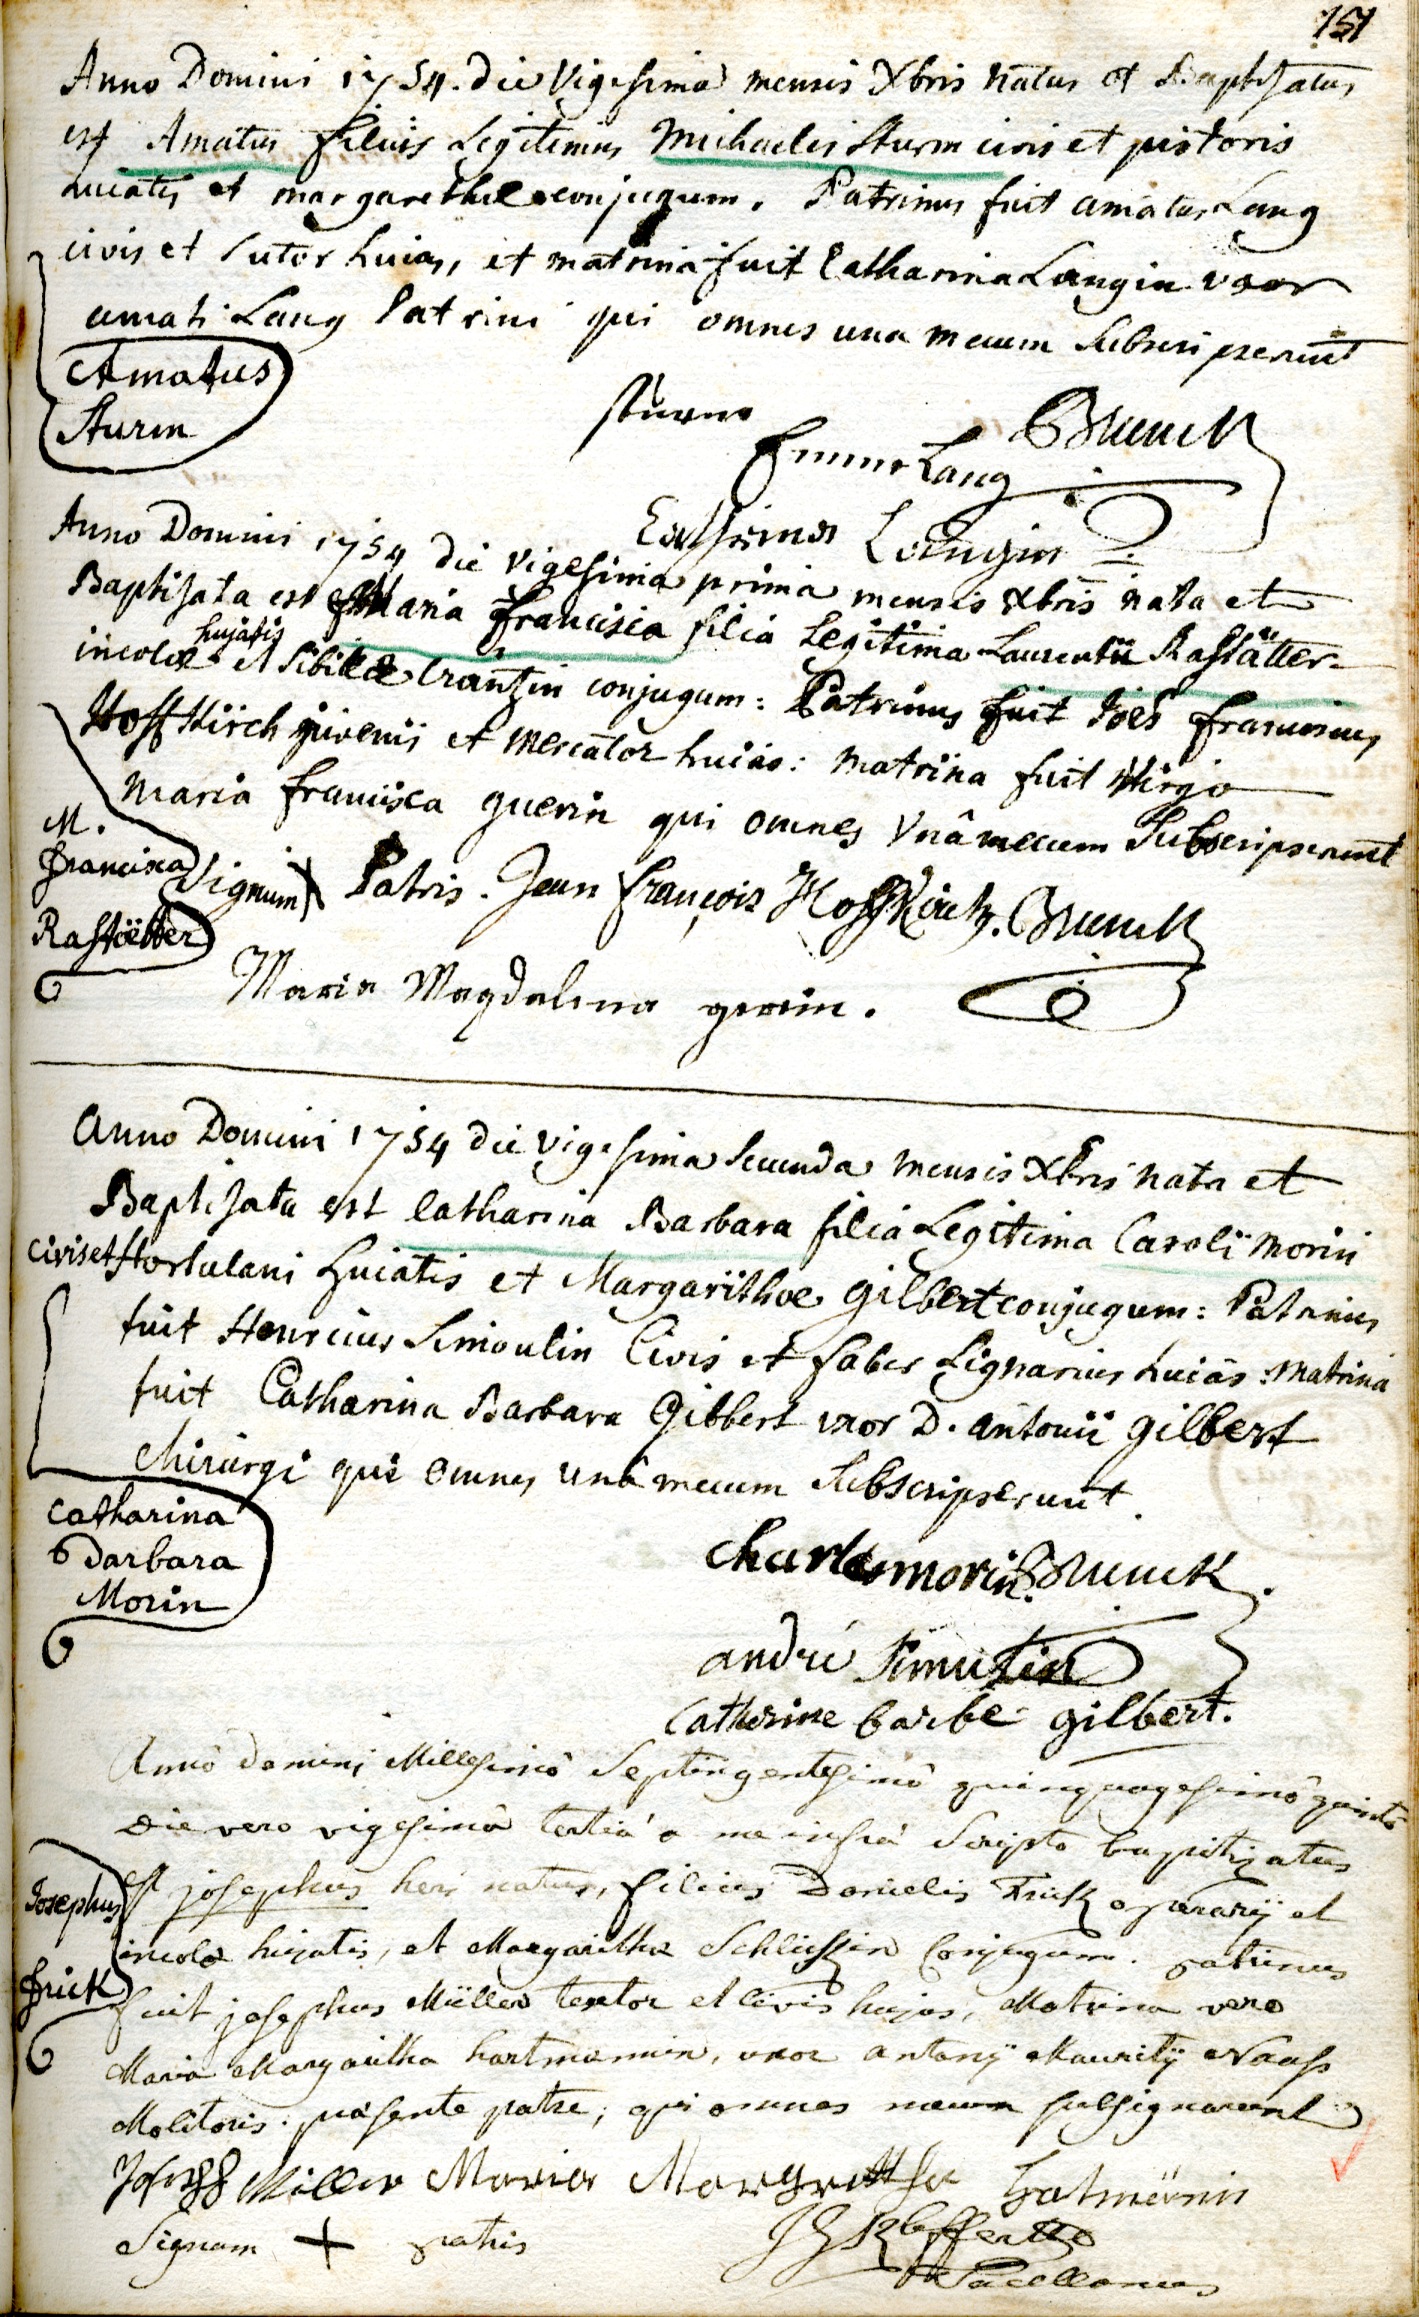 151
Anno Domini 1754. die Vigesima mensis Xbris natus et Baptisatus
est Amatus filius Legitimus Michaelis Sturm civis et pistoris
huiatis et margarethae conjugum. Patrinus fuit amatus Lang
civis et sutor huias, et matrina fuit Catharina Langin uxor
amati Lang Patrini qui omnes una mecum subscripserunt
Amatus
Sturm
sturm
Brunck
Lang
Cathrina Langin
Anno Domini 1754 die vigesima prima mensis Xbris nata et
Baptisata est Maria Francisca filia Legitima Laurentii Rastätter
incolae hujatis et Sibillae Crantzin conjugum: Patrinus fuit Joes franciscus
Hoffkirch juvenis et mercator huias: matrina fuit Virgo
Maria francisca guerin qui omnes Vnâ mecum Subscripserunt
M.
francisca
Rastoetter
Signum + Patris. Jean françois Hoffkirch. Brunck
Maria Magdalena gerin.
Anno Domini 1754 die vigesima secunda mensis Xbris nata et
Baptisata est Catharina Barbara filia Legitima Caroli Morin
civis et Hortulani huiatis et Margarithae gilbert conjugum: Patrinus
fuit Henricus Simoulin Civis et faber Lignarius huias: Matrina
fuit Catharina Barbara Gibbert uxor D. antonii gilbert
chirurgi qui omnes unâ mecum Subscripserunt.
Catharina
Barbara
Morin
charles morin. Brunck.
andré Simutin
Catherine barbe gilbert.
Annô domini Millesimô Septingentesimô quinquagesimô quintô
die vero vigesimâ tertiâ a me infrâ Scripto baptizatus
est josephus heri natus, filius Danielis Frick operarÿ et
incolae hujatis, et Margarithae Schlickin Conjugum. patrinus
fuit josephus Müller textor et civis hujas, Matrina vero
Maria Margaritha hartmannin, uxor antonÿ Mauritÿ Naass
Molitoris. praesente patre, qui omnes mecum subsignarunt
Josephus
frick
Joseph Miller Maria Margretha hatmänin
Signum + patris
Sacellanus